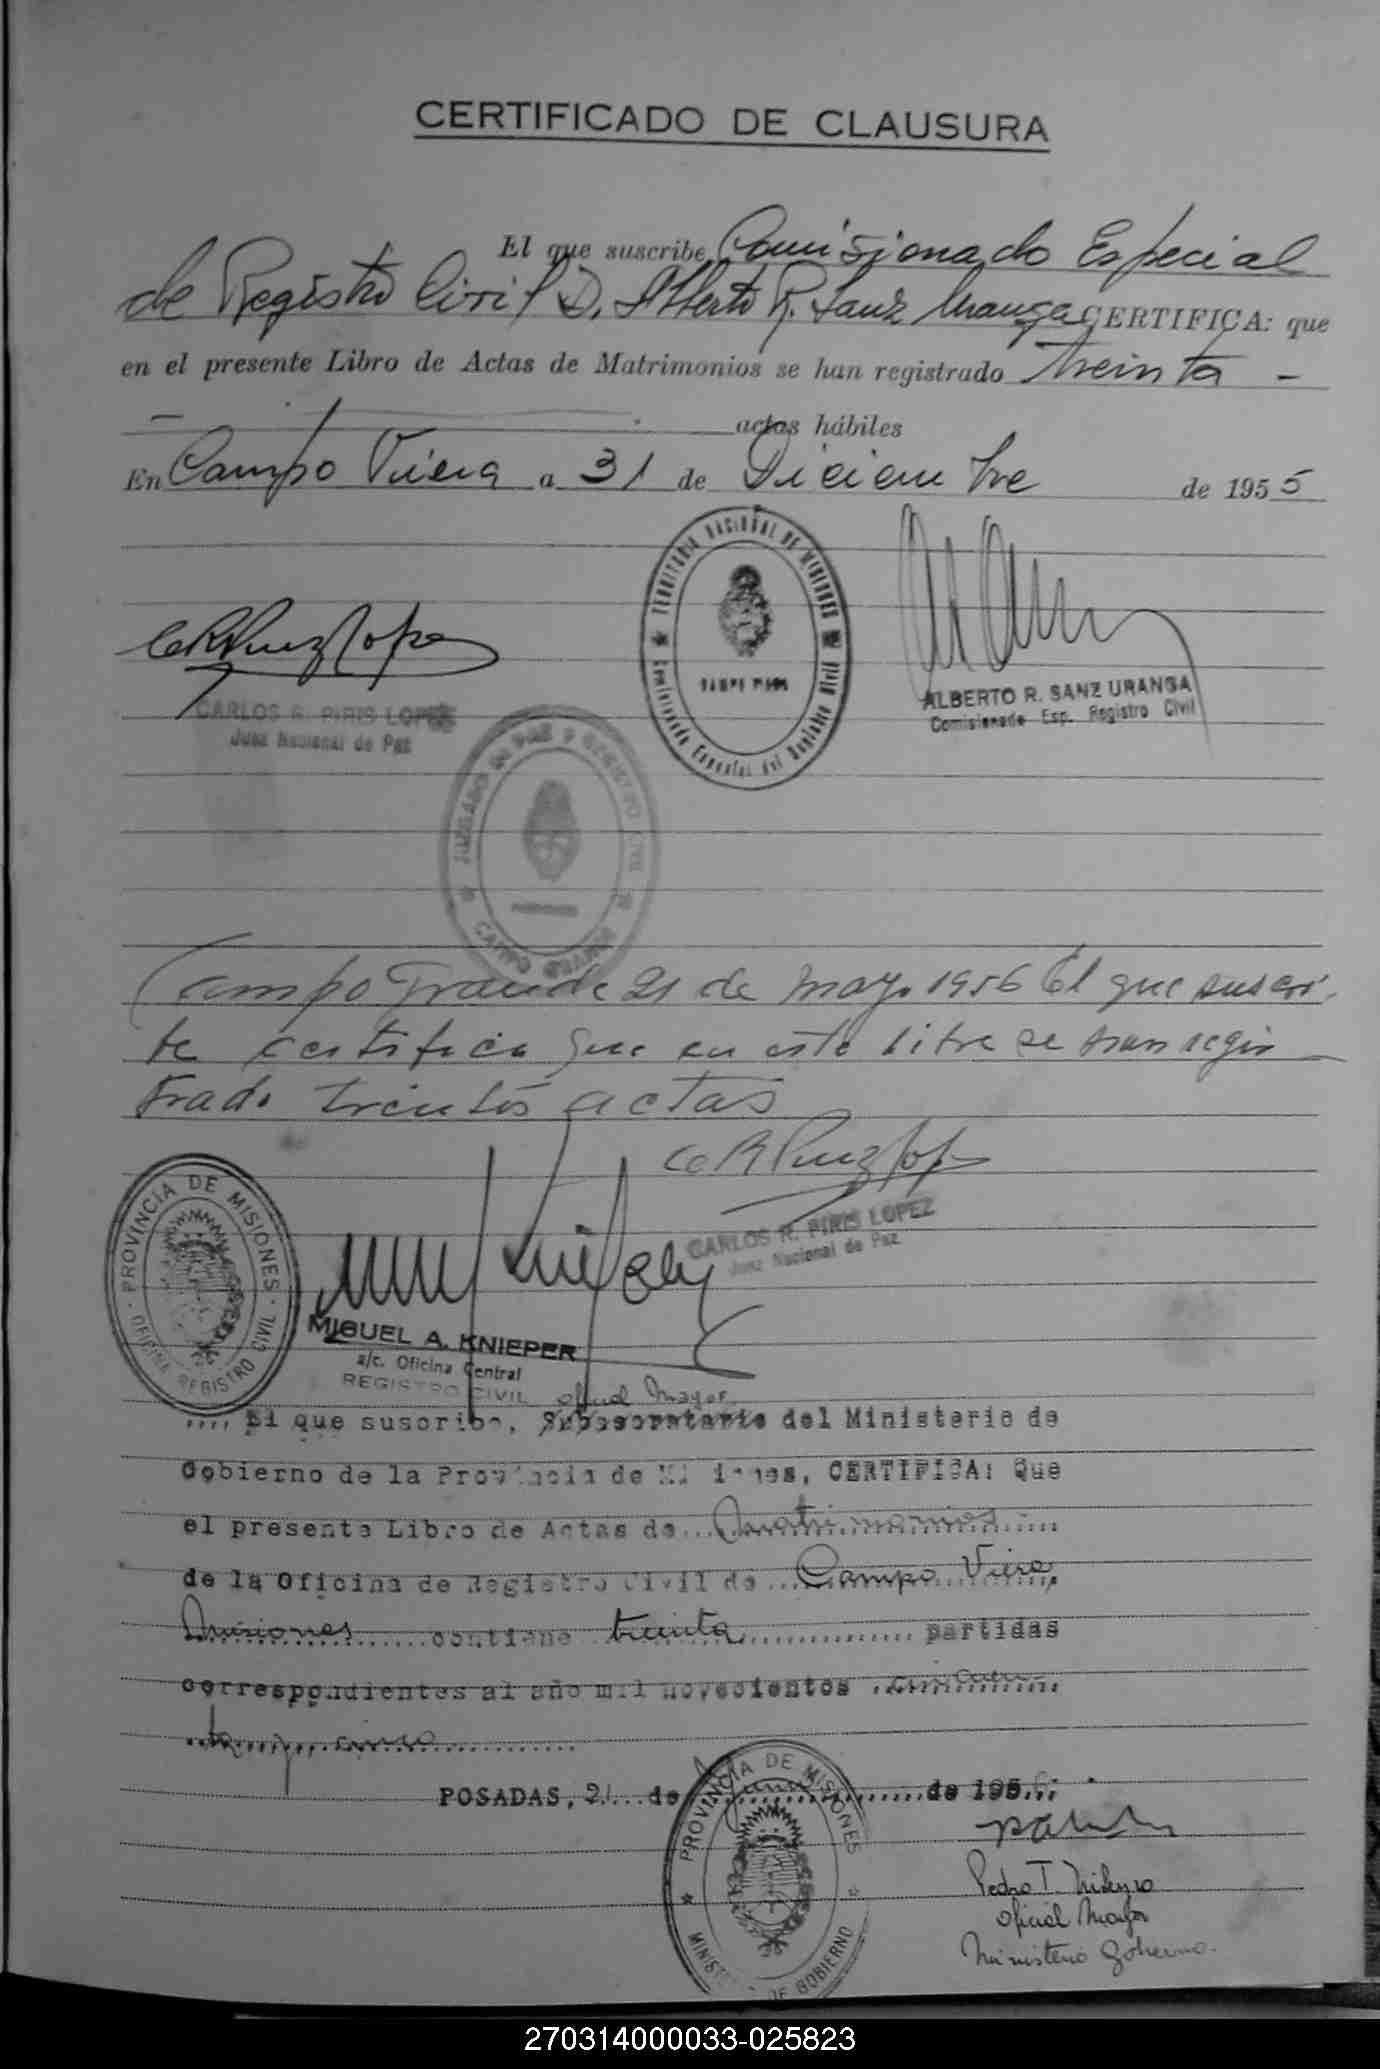 CERTIFICADO DE CLAUSURA
El que suscribe Comisionado Especial
de Registro Civil D. Alberto R. Sanz Uranga CERTIFICA: que
en el presente Libro de Actas de Matrimonios se han registrado treinta -
— actas hábiles
En Campo Viera a 31 de Diciembre de 1955
TERRITORIO NACIONAL DE MISIONES
CAMPO VIERA
Comisionado Especial del Registro Civil
CARLOS R. PIRIS LOPEZ
Juez Nacional de Paz
ALBERTO R. SANZ URANGA
Comisionado Esp. Registro Civil
JUZGADO DE PAZ Y REGISTRO CIVIL
CAMPO GRANDE
Campo Grande 21 de mayo 1956 El que suscri-
be certifica que en este libro se han regis
trado treinta actas
CARLOS R. PIRIS LOPEZ
Juez Nacional de Paz
PROVINCIA DE MISIONES
OFICINA REGISTRO CIVIL
MIGUEL A. KNIEPER
a/c. Oficina Central
REGISTRO CIVIL
oficial Mayor
.... El que suscribe, Subsecretario del Ministerio de
Gobierno de la Provincia de Misiones, CERTIFICA: Que
el presente Libro de Actas de Matrimonios
de la Oficina de Registro Civil de Campo Viera,
Misiones contiene treinta partidas
correspondientes al año mil novecientos cincuen-
ta y cinco
POSADAS, 21 de Junio de 1956
PROVINCIA DE MISIONES
MINIST DE GOBIERNO
Pedro T.
Oficial Mayor
Ministerio Gobierno.
270314000033-025823